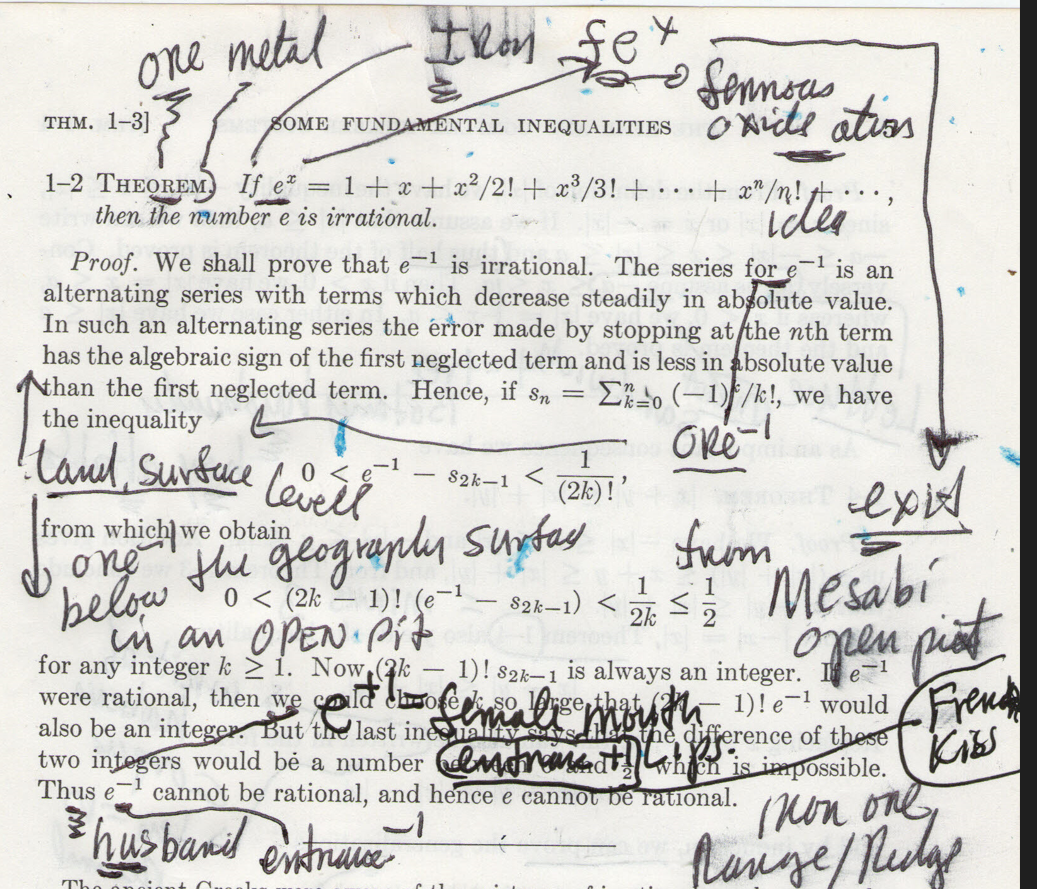 one metal Iron fe^x
ferrous
oxidé ation
THM. 1–3] SOME FUNDAMENTAL INEQUALITIES
1–2 THEOREM. If e^x = 1 + x + x^2/2! + x^3/3! + · · · + x^n/n! + · · ·,
then the number e is irrational.
idea
Proof. We shall prove that e^{−1} is irrational. The series for e^{−1} is an
alternating series with terms which decrease steadily in absolute value.
In such an alternating series the error made by stopping at the nth term
has the algebraic sign of the first neglected term and is less in absolute value
than the first neglected term. Hence, if s_n = ∑_{k=0}^n (−1)^k/k!, we have
the inequality
ore^{-1}
Land, surface
level
0 < e^{−1} − s_{2k−1} < 1/(2k)!,
exit
from which we obtain
one^{-1} the geography surface from
below
0 < (2k − 1)! (e^{−1} − s_{2k−1}) < 1/2k ≤ 1/2
Mesabi
in an open pit
open pit
for any integer k ≥ 1. Now (2k − 1)! s_{2k−1} is always an integer. If e^{−1}
were rational, then we could choose k so large that (2k − 1)! e^{−1} would
e^{+1} – female mouth
also be an integer. But the last inequality says that the difference of these
entrance +1 Lips.
French
Kiss
two integers would be a number between 0 and 1/2, which is impossible.
Thus e^{−1} cannot be rational, and hence e cannot be rational.
husband entrance^{-1}
iron ore
Range/Ridge